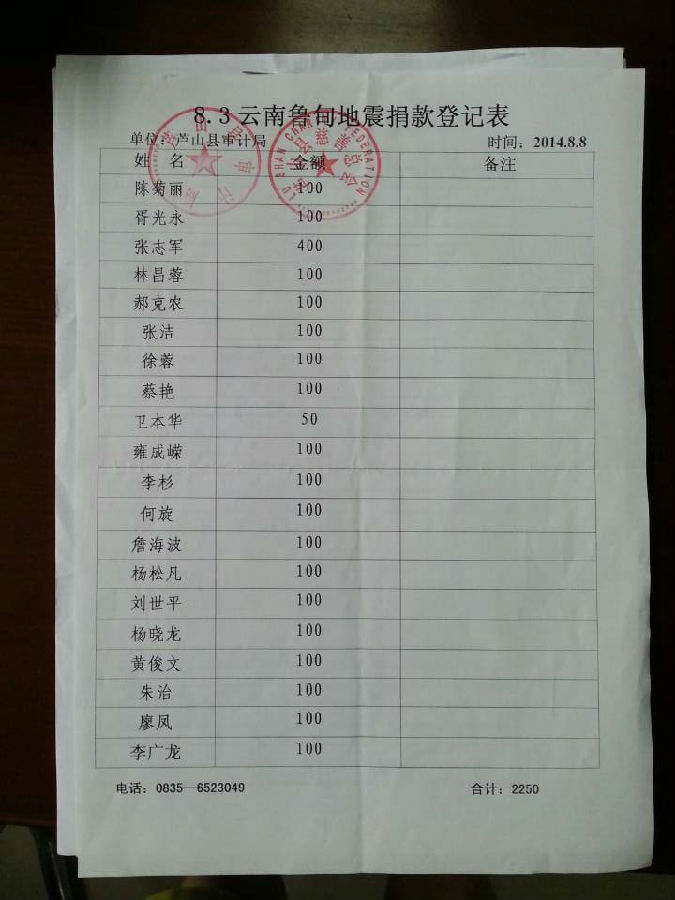 8.3云南鲁甸地震捐款登记表
单位：芦山县审计局 时间：2014.8.8
姓 名 金额 备注
陈菊丽 100
胥光永 100
张志军 400
林昌蓉 100
郝克农 100
张洁 100
徐蓉 100
蔡艳 100
卫本华 50
雍成嵘 100
李杉 100
何旋 100
詹海波 100
杨松凡 100
刘世平 100
杨晓龙 100
黄俊文 100
朱治 100
廖凤 100
李广龙 100
电话：0835—6523049 合计：2250